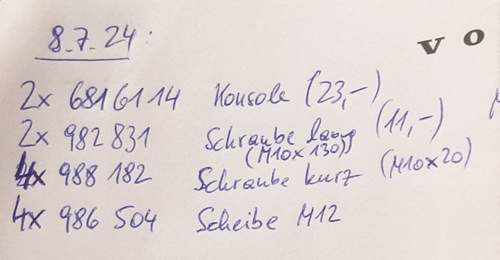 8.7.24:
VO
2x 6816114 Konsole (23,-)
2x 982 831 Schraube lang (11,-)
(M10x130)
4x 988 182 Schraube kurz (M10x20)
4x 986 504 Scheibe M12